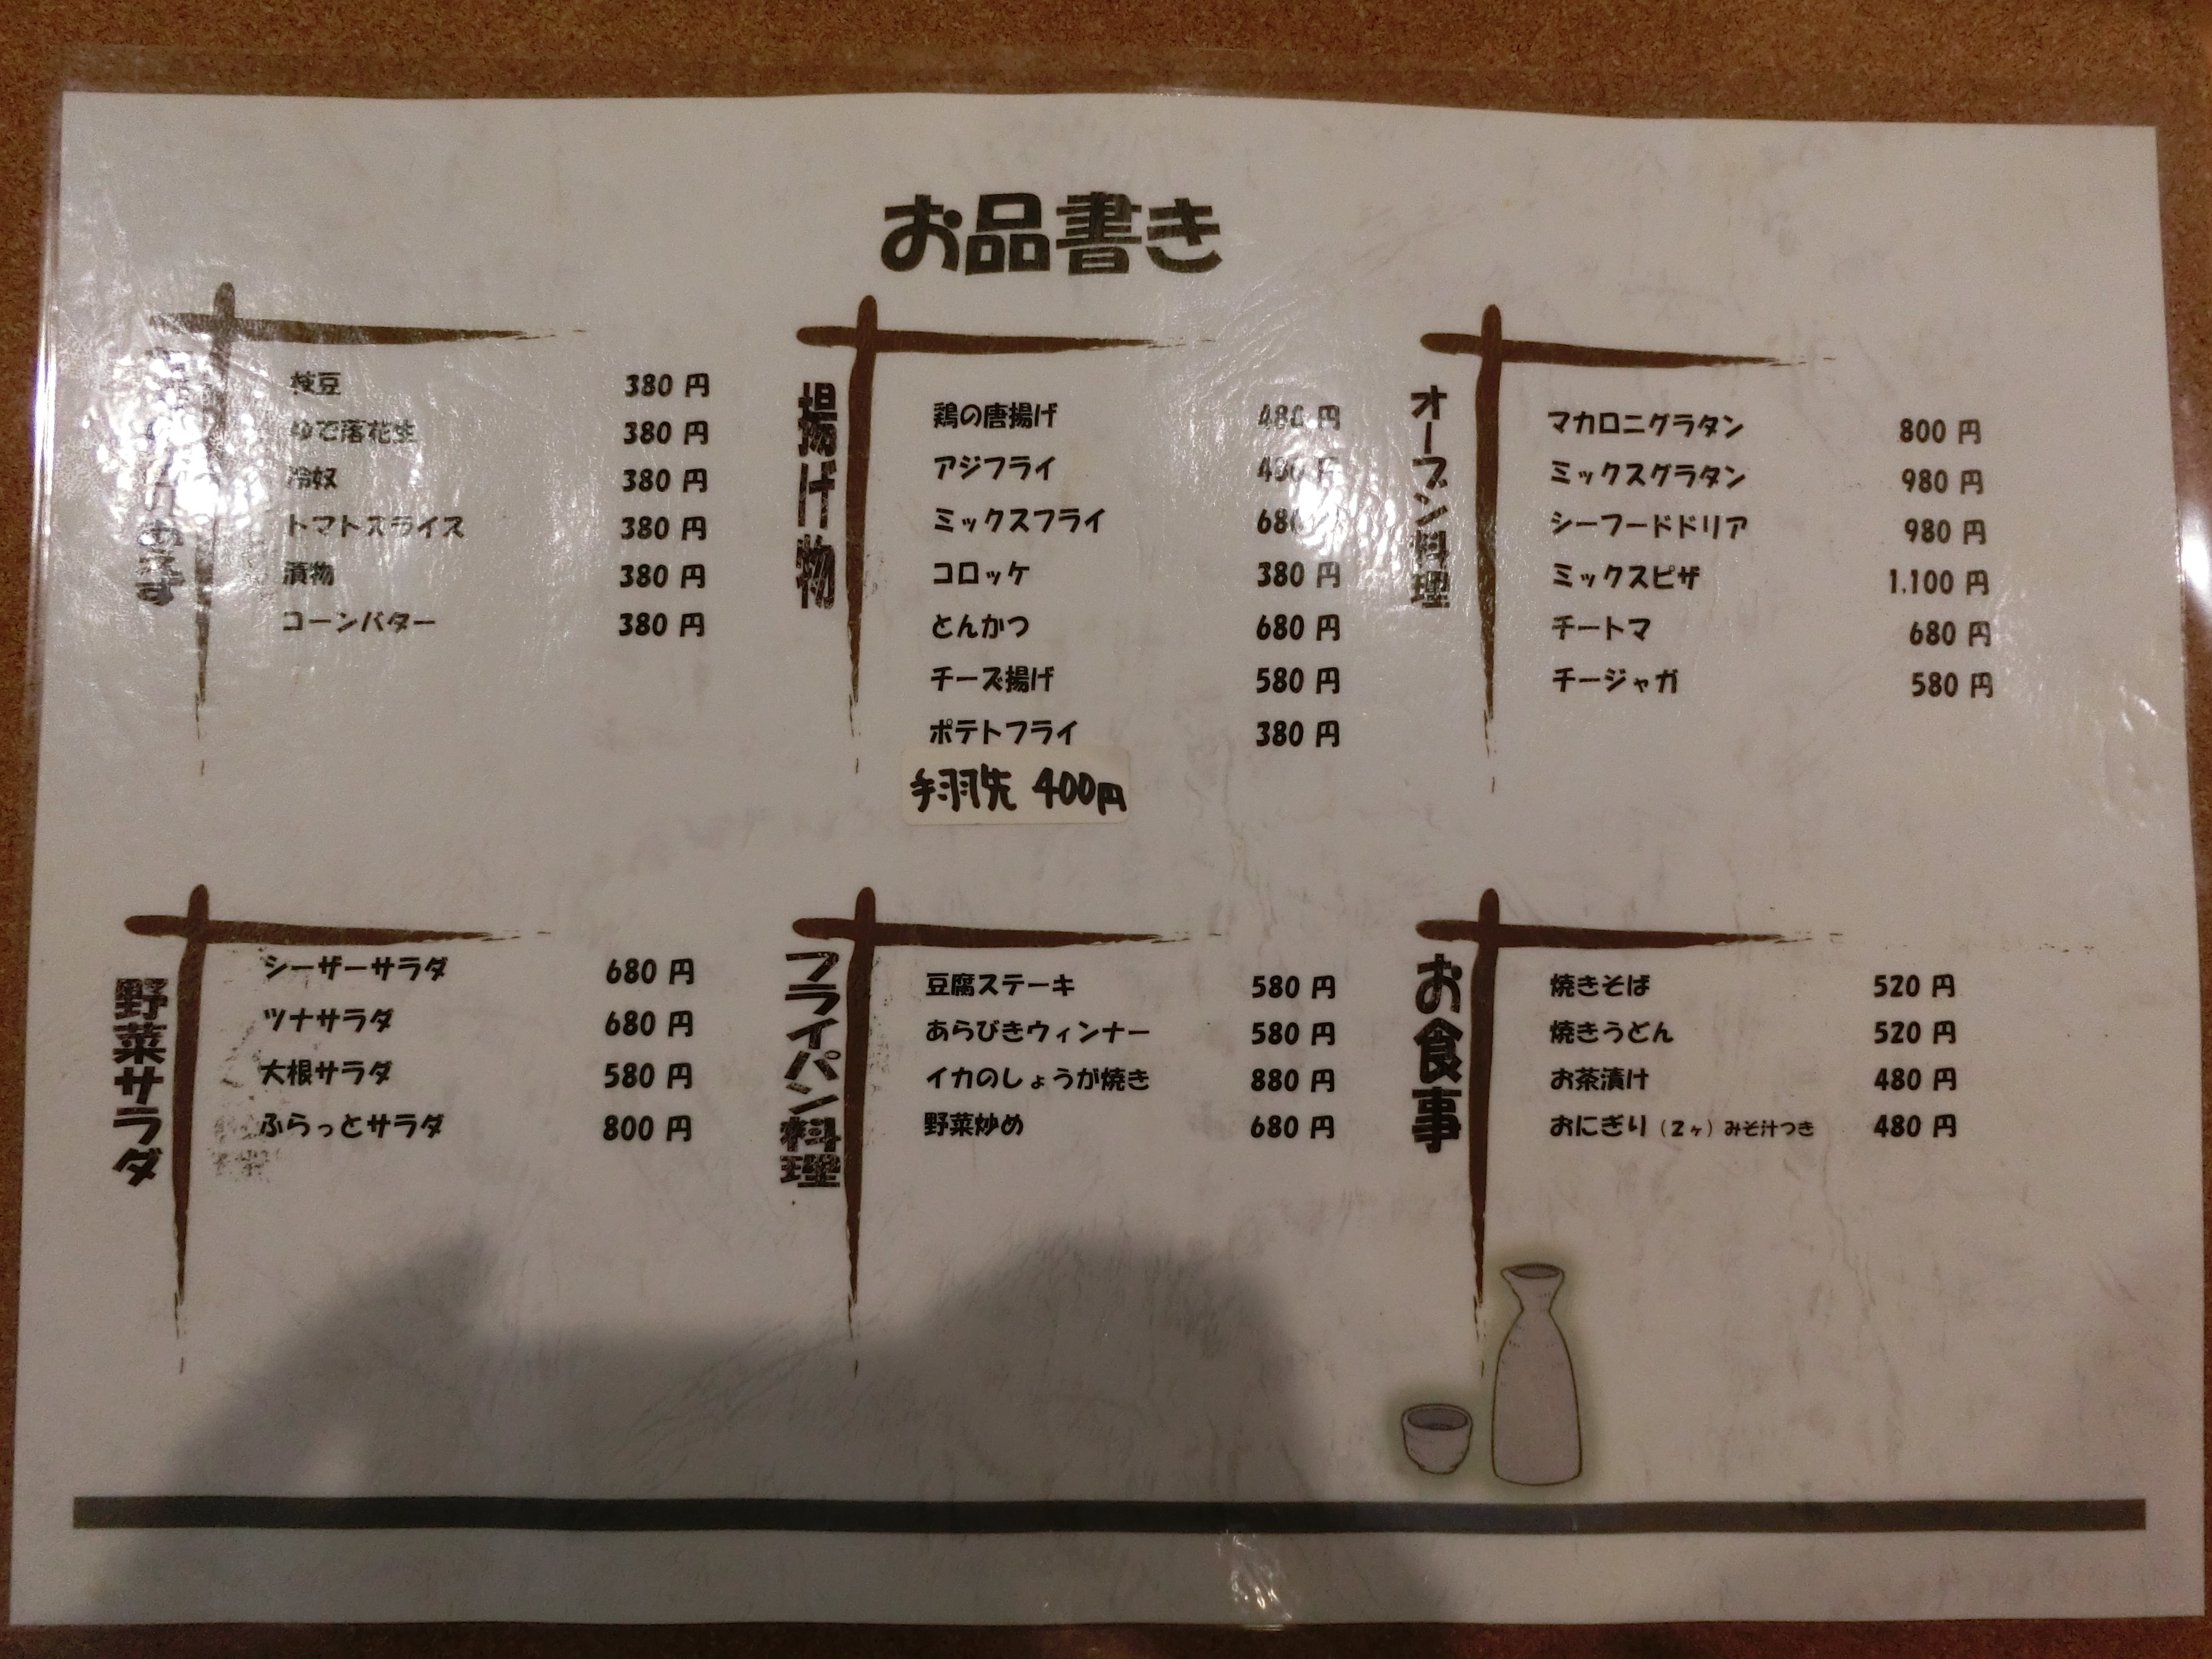 お品書き
枝豆 380 円
ゆで落花生 380 円
冷奴 380 円
トマトスライス 380 円
漬物 380 円
コーンバター 380 円
揚げ物
鶏の唐揚げ 480 円
アジフライ 円
ミックスフライ 680
コロッケ 380 円
とんかつ 680 円
チーズ揚げ 580 円
ポテトフライ 380 円
手羽先 400円
オーブン料理
マカロニグラタン 800 円
ミックスグラタン 980 円
シーフードドリア 980 円
ミックスピザ 1.100 円
チートマ 680 円
チージャガ 580 円
野菜サラダ
シーザーサラダ 680 円
ツナサラダ 680 円
大根サラダ 580 円
ふらっとサラダ 800 円
フライパン料理
豆腐ステーキ 580 円
あらびきウィンナー 580 円
イカのしょうが焼き 880 円
野菜炒め 680 円
お食事
焼きそば 520 円
焼きうどん 520 円
お茶漬け 480 円
おにぎり（2ヶ）みそ汁つき 480 円